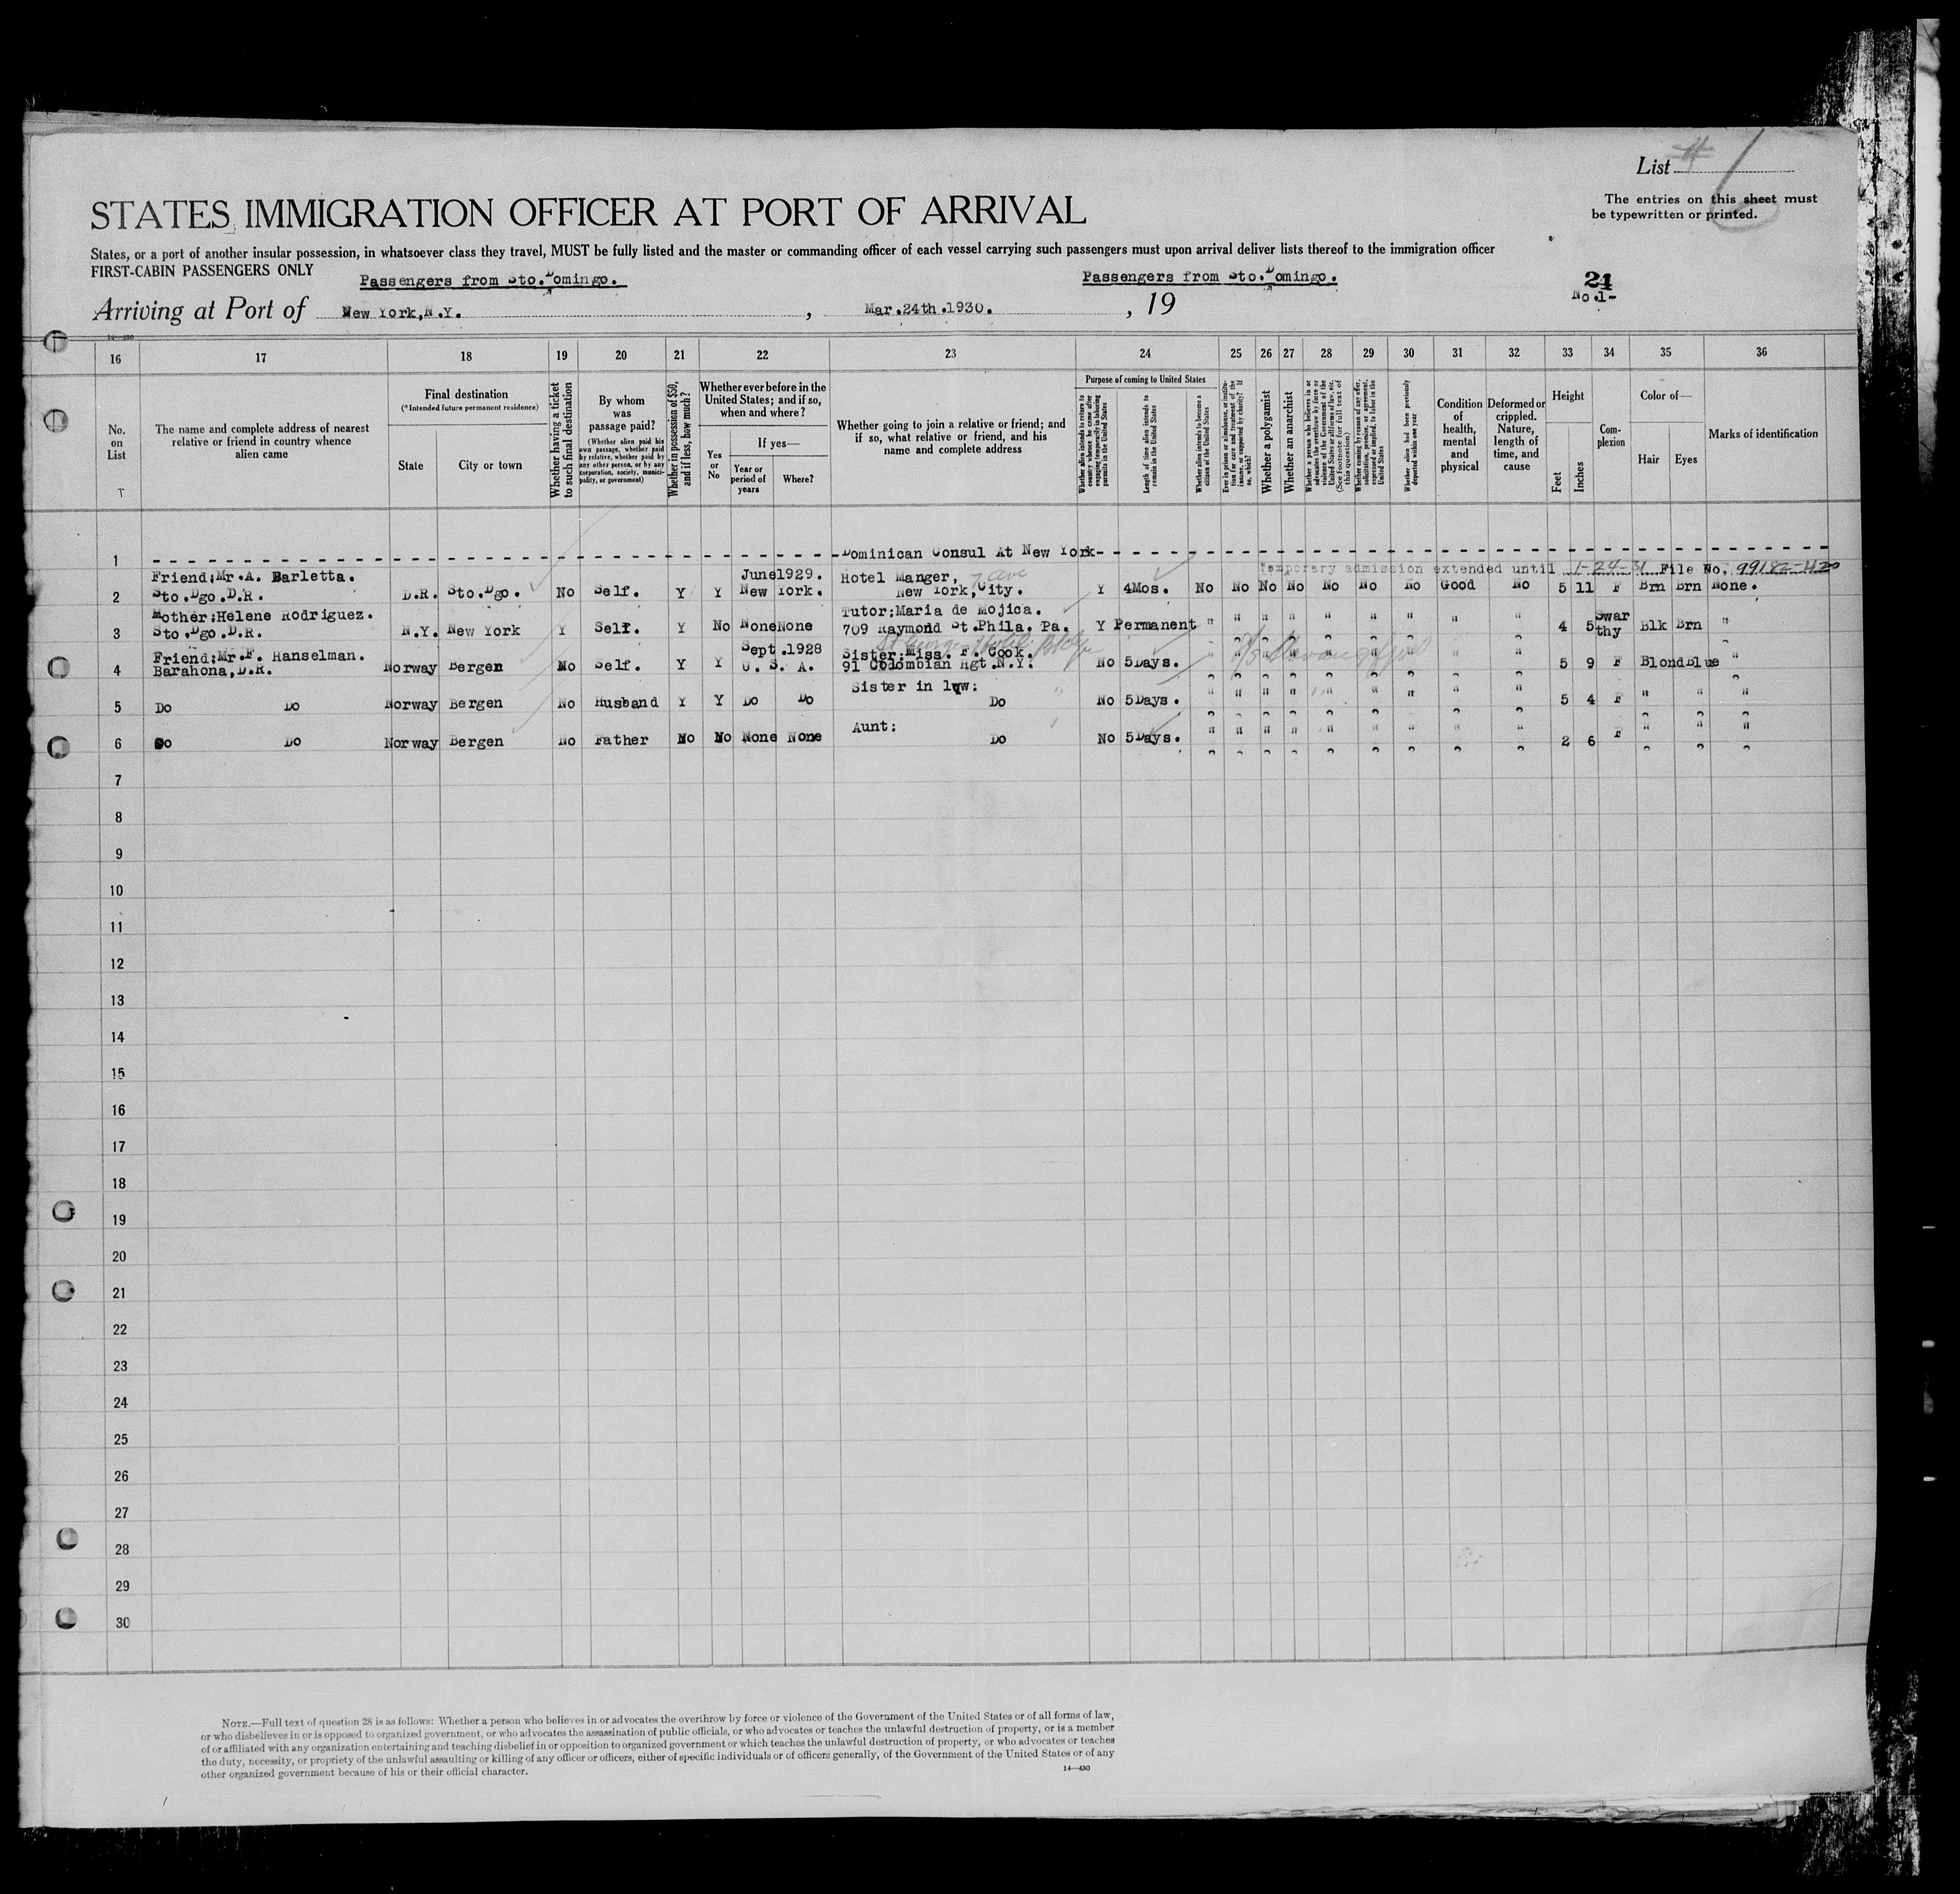 List
The entries on this sheet must
be typewritten or printed.
STATES IMMIGRATION OFFICER AT PORT OF ARRIVAL
States, or a port of another insular possession, in whatsoever class they travel, MUST be fully listed and the master or commanding officer of each vessel carrying such passengers must upon arrival deliver lists thereof to the immigration officer
FIRST-CABIN PASSENGERS ONLY
Passengers from Sto. Domingo. Passengers from Sto. Domingo.
No.1-
Arriving at Port of New York,N.Y. , Mar.24th.1930. , 19
14—430
16 17 18 19 20 21 22 23 24 25 26 27 28 29 30 31 32 33 34 35 36
No. on List
The name and complete address of nearest relative or friend in country whence alien came
Final destination
(*Intended future permanent residence)
State City or town
Whether having a ticket to such final destination
By whom was passage paid?
(Whether alien paid his own passage, whether paid by relative, whether paid by any other person, or by any corporation, society, municipality, or government)
Whether in possession of $50, and if less, how much?
Whether ever before in the United States; and if so, when and where?
Yes or No
If yes—
Year or period of years Where?
Whether going to join a relative or friend; and if so, what relative or friend, and his name and complete address
Purpose of coming to United States
Whether alien intends to return to country whence he came after engaging temporarily in laboring pursuits in the United States
Length of time alien intends to remain in the United States
Whether alien intends to become a citizen of the United States
Ever in prison or almshouse, or institution for care and treatment of the insane, or supported by charity? If so, which?
Whether a polygamist
Whether an anarchist
Whether a person who believes in or advocates the overthrow by force or violence of the Government of the United States or all forms of law, etc. (See footnote for full text of this question)
Whether coming by reason of any offer, solicitation, promise, or agreement, expressed or implied, to labor in the United States
Whether alien had been previously deported within one year
Condition of health, mental and physical
Deformed or crippled. Nature, length of time, and cause
Height
Feet Inches
Complexion
Color of—
Hair Eyes
Marks of identification
1 Dominican Consul At New York
Temporary admission extended until 1-24-31 File No. 99182-420
Friend;Mr.A. Barletta. June1929. Hotel Manger, 7 ave
2 Sto.Dgo.D.R. D.R. Sto.Dgo. No Self. Y Y New York. New York,City. Y 4Mos. No No No No No No No Good No 5 11 F Brn Brn None.
Mother;Helene Rodriguez. Tutor;Maria de Mojica.
3 Sto.Dgo.D.R. N.Y. New York Y Self. Y No None None 709 Raymond St.Phila. Pa. Y Permanent " " " " " " " " " 4 5 Swarthy Blk Brn "
Friend;Mr.F. Hanselman. Sept.1928 Sister;Miss. F. Cook.
4 Barahona,D.R. Norway Bergen No Self. Y Y U. S. A. 91 Colombian Hgt.N.Y. No 5Days. " " " " " " " " " 5 9 F Blond Blue "
Sister in law:
5 Do Do Norway Bergen No Husband Y Y Do Do Do No 5Days. " " " " " " " " " 5 4 F " " "
Aunt:
6 Do Do Norway Bergen No Father No No None None Do No 5Days. " " " " " " " " " 2 6 F " " "
7
8
9
10
11
12
13
14
15
16
17
18
19
20
21
22
23
24
25
26
27
28
29
30
NOTE.—Full text of question 28 is as follows: Whether a person who believes in or advocates the overthrow by force or violence of the Government of the United States or of all forms of law,
or who disbelieves in or is opposed to organized government, or who advocates the assassination of public officials, or who advocates or teaches the unlawful destruction of property, or is a member
of or affiliated with any organization entertaining and teaching disbelief in or opposition to organized government or which teaches the unlawful destruction of property, or who advocates or teaches
the duty, necessity, or propriety of the unlawful assaulting or killing of any officer or officers, either of specific individuals or of officers generally, of the Government of the United States or of any
other organized government because of his or their official character.
14—430